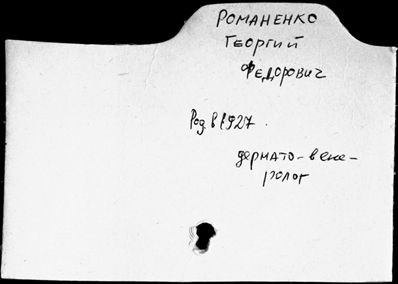 РОМАНЕНКО
ГЕОРГИЙ
ФЕДОРОВИЧ
Род. в 1927.
дермато-вене-
ролог